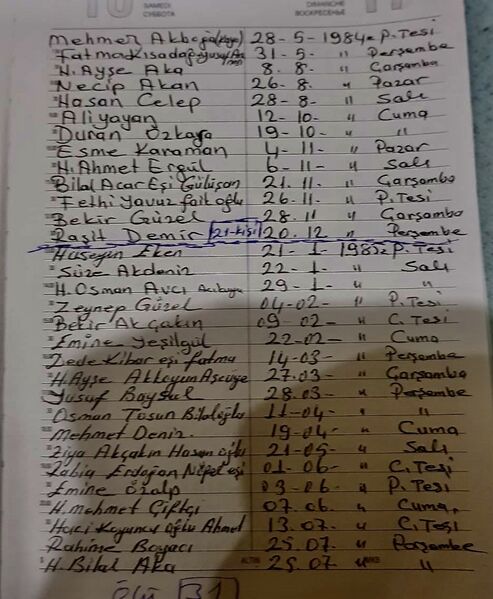 SAMEDİ
СУББОТА
DIMANCHE
ВОСКРЕСЕНЬЕ
Mehmet 28-5-1984 P.Tesi
Fatma Kısadağ 31-5- " Perşembe
H. Ayşe Aka 8.8- " Çarşamba
Necip Akan 26-8- " Pazar
Hasan Celep 28-8- " Salı
Ali yayan 12-10- " Cuma
Duran Özkaya 19-10- " "
Esme Karaman 4-11- " Pazar
H. Ahmet Ergül 6-11- " Salı
Bilal Acar Eşi Gülüşan 21.11- " Çarşamba
Fethi Yavuz faik oğlu 26.11- " P.Tesi
Bekir Güzel 28.11 " Çarşamba
Raşit Demir 21-kişi 20.12 " Perşembe
Hüseyin Eken 21-1-1985 P.Tesi
Süze Akdeniz 22-1- " Salı
H. Osman Avcı 29-1 " "
Zeynep Güzel 04-02- " P.Tesi
Bekir Akçakın 09-02- " C.Tesi
Emine Yeşilgül 22-02- " Cuma
Dede Kibar eşi fatma 14-03- " Perşembe
H. Ayşe Akkoyun 27.03- " Çarşamba
Yusuf Baysul 28.03- " Perşembe
Osman Tosun Bilaloğlu 11-04- " "
Mehmet Deniz. 19-04- " Cuma
Ziya Akçakın Hasan oğlu 21-05- " Salı
Rabia Erdoğan eşi 01-06- " C.Tesi
Emine Özalp 03-06- " P.Tesi
H. Mehmet Çiftçi 07.06. " Cuma
Hacı Koyuncu oğlu Ahmet 13.07. " C.Tesi
Rahime Boyacı 25.07- " Perşembe
H. Bilal Aka 25.07 " "
Ölü 31